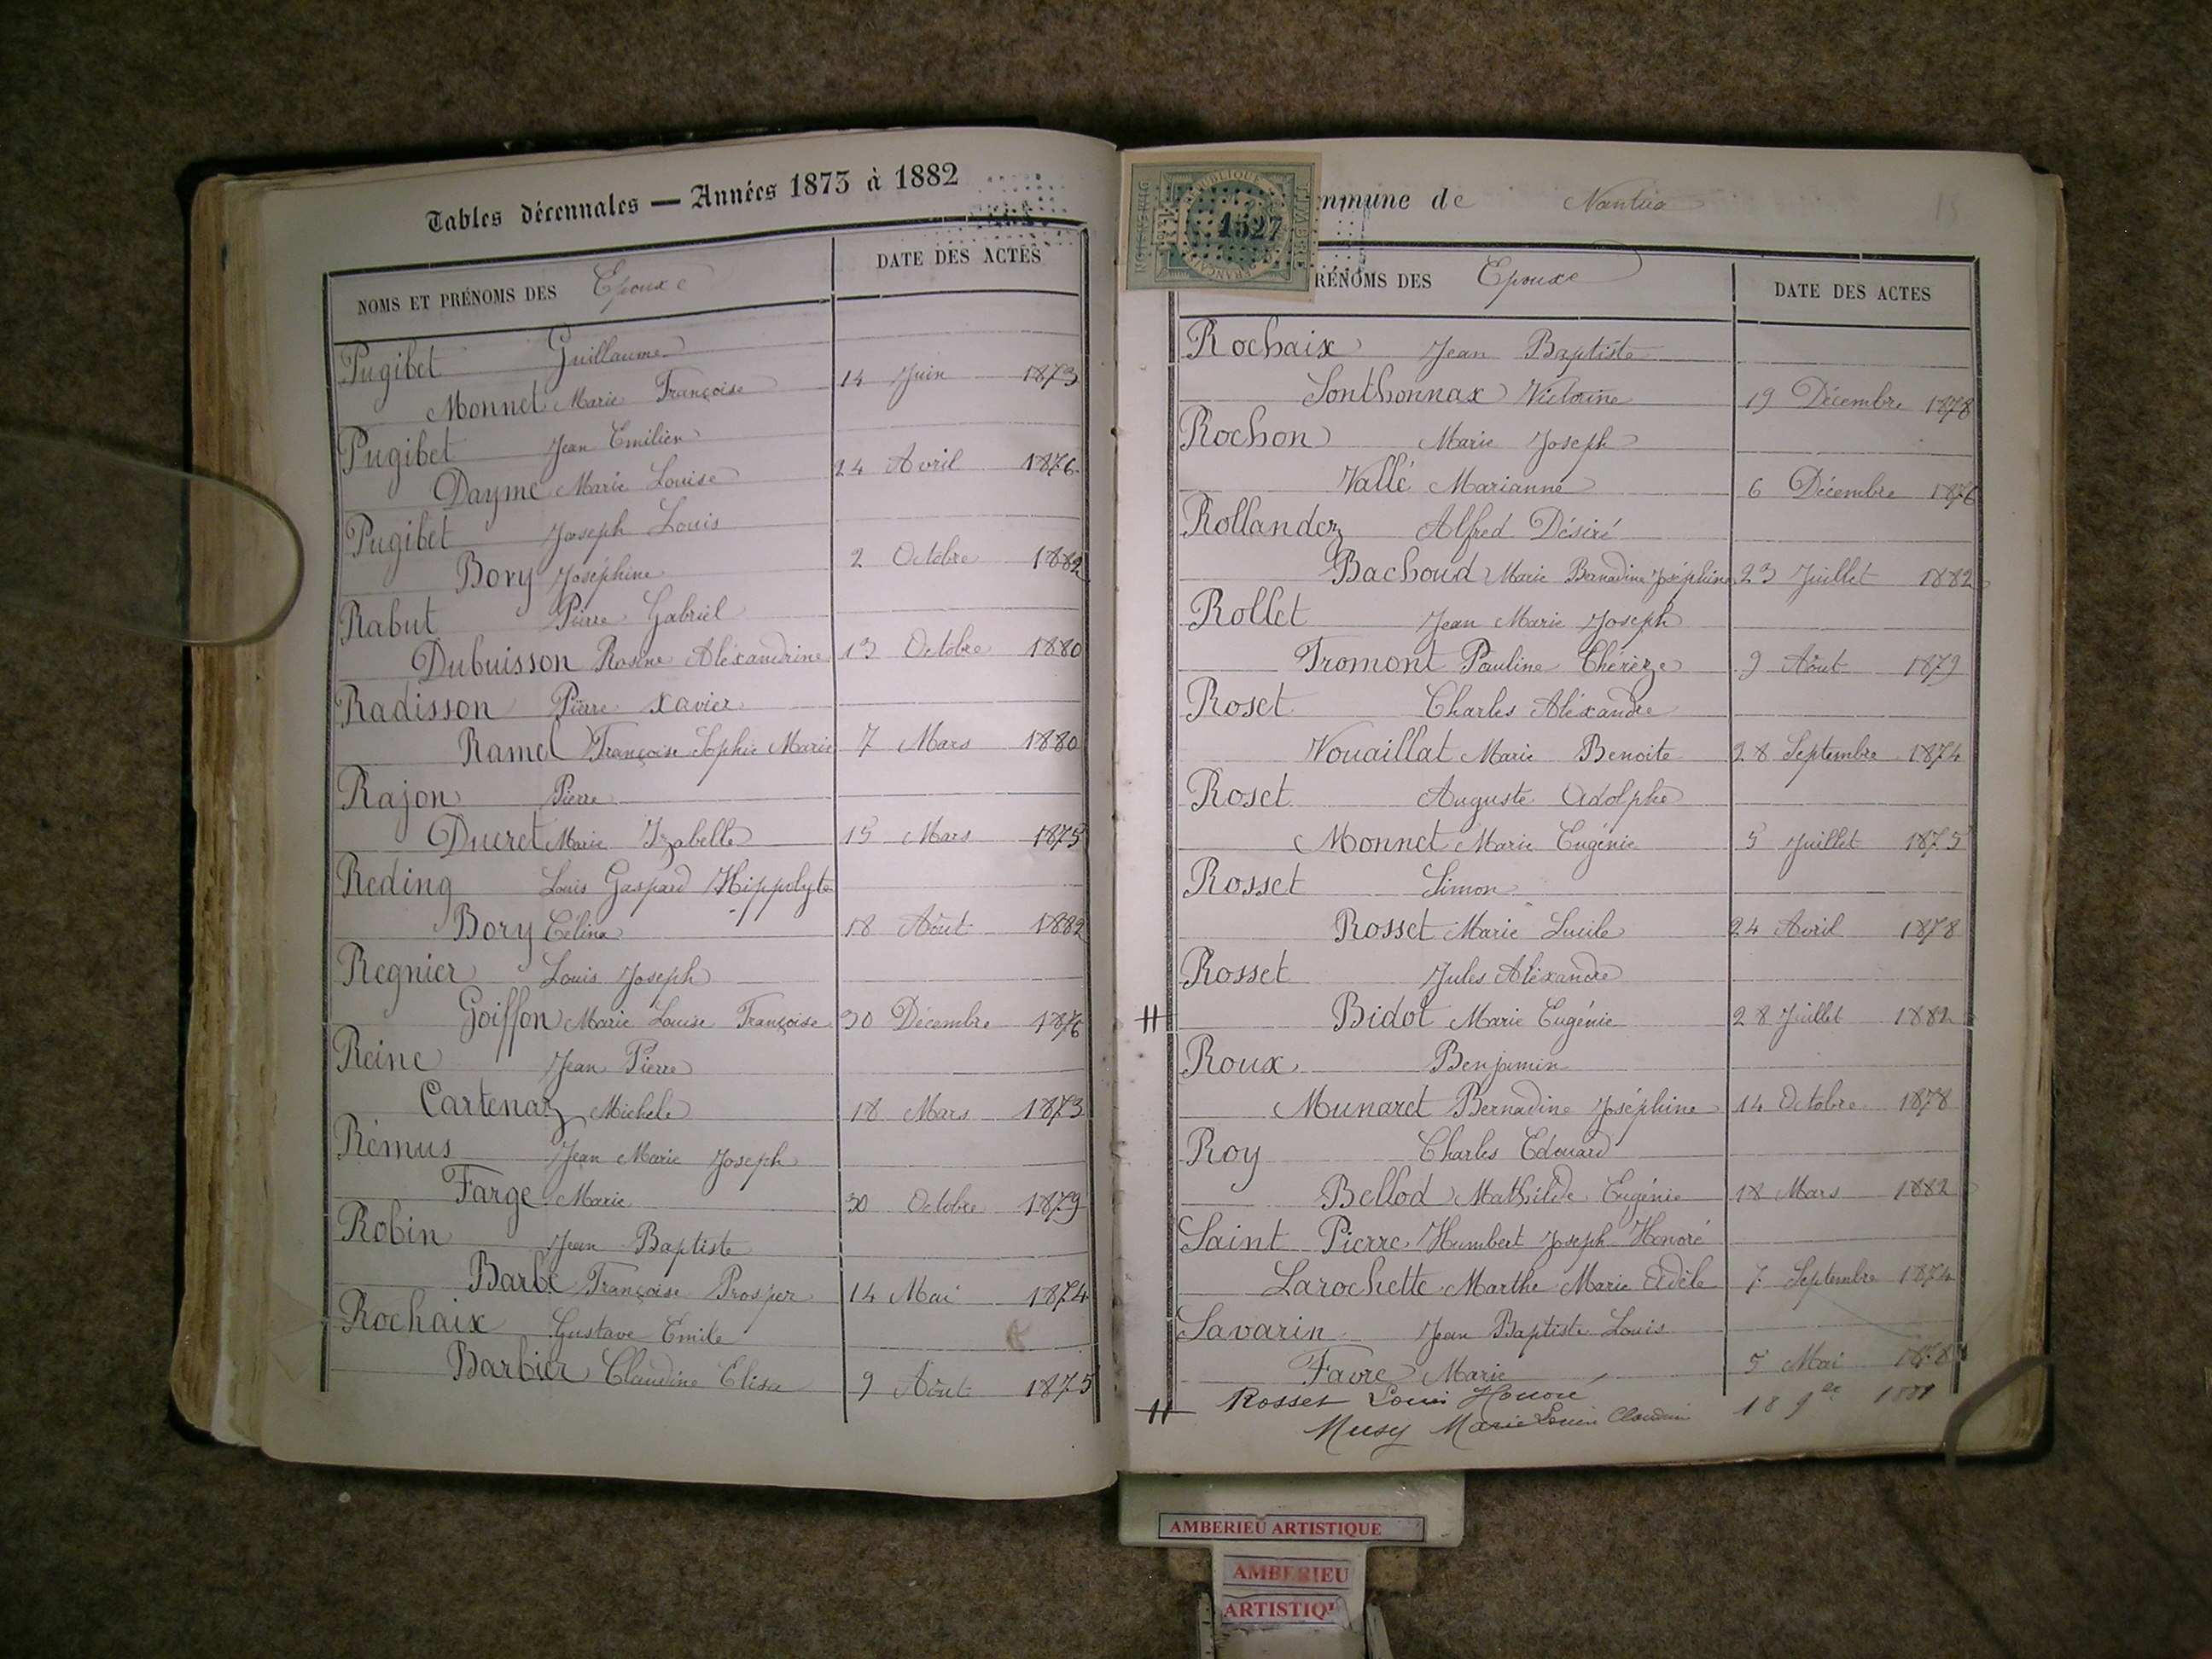 Tables décennales — Années 1873 à 1882
NOMS ET PRÉNOMS DES Epoux
DATE DES ACTES
Pugibet Guillaume
Monnet Marie Françoise 14 Juin 1873
Pugibet Jean Emilien
Dayme Marie Louise 24 Avril 1876
Pugibet Joseph Louis
Bory Joséphine 2 Octobre 1882
Rabut Pierre Gabriel
Dubuisson Rosine Aléxandrine 13 Octobre 1880
Radisson Pierre Xavier
Ramel Françoise Sophie Marie 7 Mars 1880
Rajon Pierre
Ducret Marie Izabelle 15 Mars 1875
Reding Louis Gaspard Hippolyte
Bory Célina 18 Août 1882
Regnier Louis Joseph
Goiffon Marie Louise Françoise 30 Décembre 1876
Reine Jean Pierre
Cartenaz Michele 18 Mars 1873
Rémus Jean Marie Joseph
Farge Marie 30 Octobre 1879
Robin Jean Baptiste
Barbe Françoise Prosper 14 Mai 1874
Rochaix Gustave Emile
Barbier Claudine Elisa 9 Août 1875
TIMBRE
RÉPUBLIQUE FRANÇAISE
1527
mmune de Nantua
RÉNOMS DES Epoux
DATE DES ACTES
Rochaix Jean Baptiste
Sonthonnax Victorine 19 Décembre 1878
Rochon Marie Joseph
Vallé Marianne 6 Décembre 1876
Rollandez Alfred Désiré
Bachoud Marie Bernadine Joséphine 23 Juillet 1882
Rollet Jean Marie Joseph
Fromont Pauline Thérèze 9 Août 1879
Roset Charles Aléxandre
Nouaillat Marie Benoite 28 Septembre 1874
Roset Auguste Adolphe
Monnet Marie Eugénie 5 Juillet 1875
Rosset Simon
Rosset Marie Lucile 24 Avril 1878
Rosset Jules Aléxandre
Bidot Marie Eugénie 28 Juillet 1882
Roux Benjamin
Munaret Bernadine Joséphine 14 Octobre 1878
Roy Charles Edouard
Bellod Mathilde Eugénie 18 Mars 1882
Saint Pierre Humbert Joseph Honoré
Larochette Marthe Marie Adèle 7 Septembre 1874
Savarin Jean Baptiste Louis
Favre Marie 5 Mai 1878
Rosset Louis Honoré
Musy Marie Louise 18 9er
AMBERIEU ARTISTIQUE
AMBERIEU
ARTISTIQU